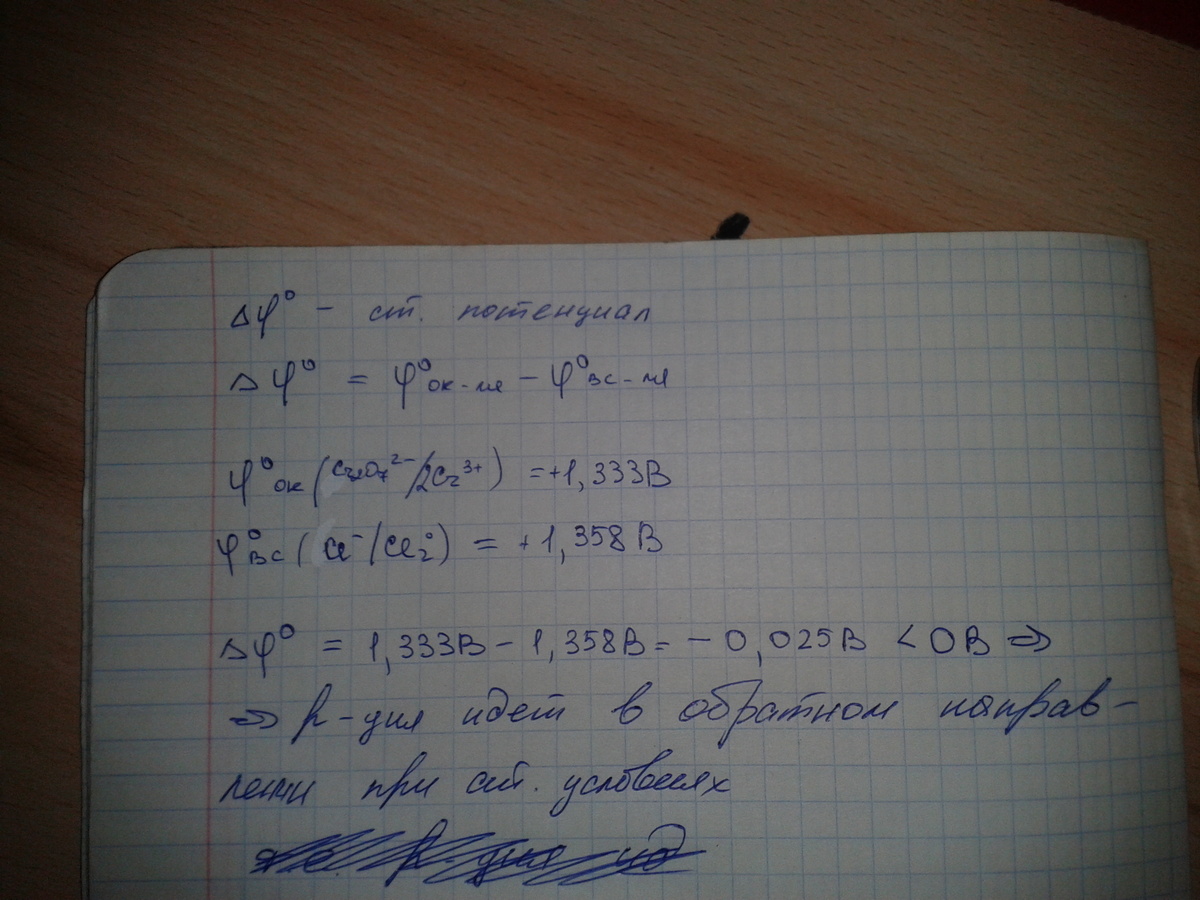 Δφ⁰ - ст. потенциал
Δφ⁰ = φ⁰ ок-ля - φ⁰ вс-ля
φ⁰ ок (Cr₂O₇²⁻/2Cr³⁺) = +1,333В
φ⁰ вс (Cl⁻/Cl₂⁰) = +1,358 В
Δφ⁰ = 1,333В - 1,358В = - 0,025В < 0В ⇒
⇒ R-ция идет в обратном направ-
лении при ст. условиях